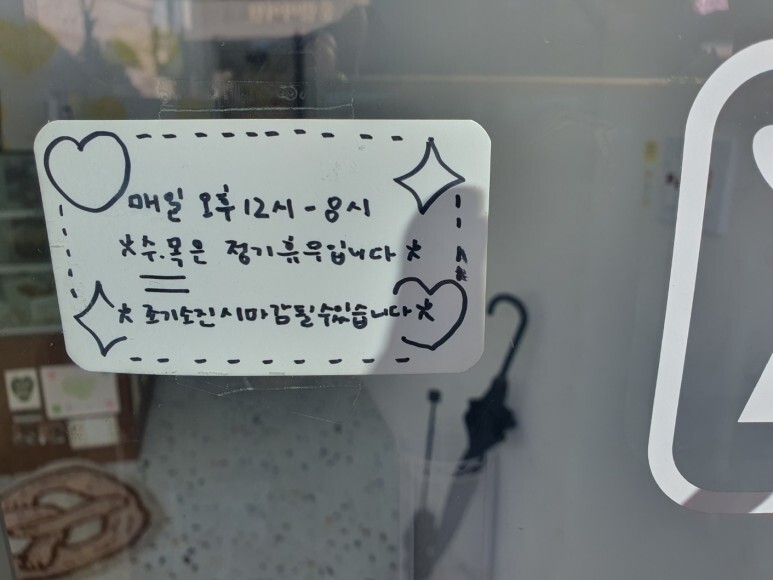 매일 오후 12시 - 8시
*수.목은 정기휴무입니다*
*조기소진시 마감될수있습니다*